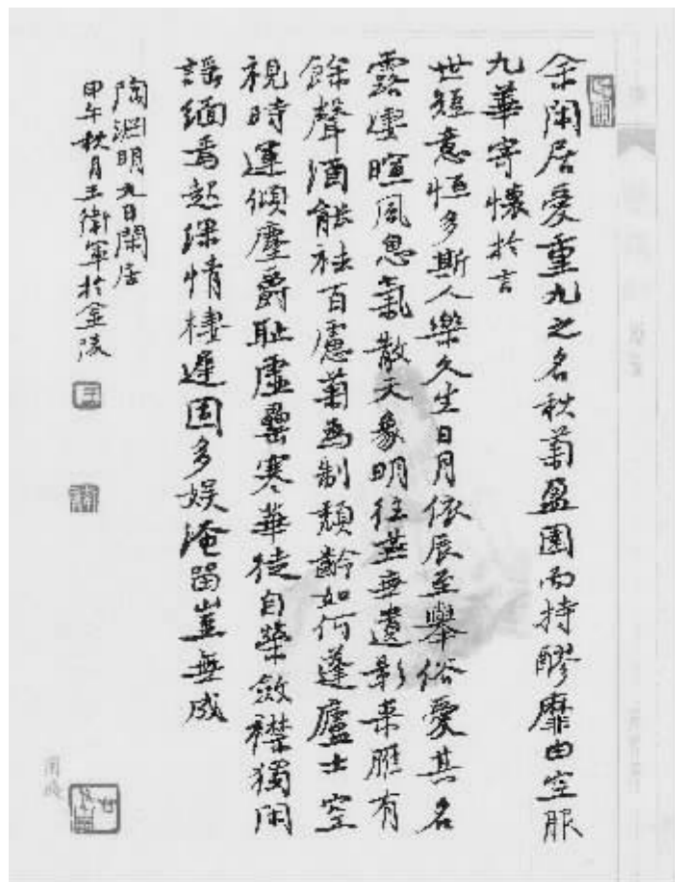 余閑居愛重九之名秋菊盈園而持醪靡由空服
九華寄懷於言
世短意恒多斯人樂久生日月依辰至舉俗愛其名
露淒暄風息氣散天象明往燕無遺影来雁有
餘聲酒能祛百慮菊為制頹齡如何蓬廬士空
視時運傾塵爵恥虛罍寒華徒自榮斂襟獨閑
謠緬焉起深情棲遲固多娛淹留豈無成
陶淵明九日閑居
甲午秋月王衛軍於金陵